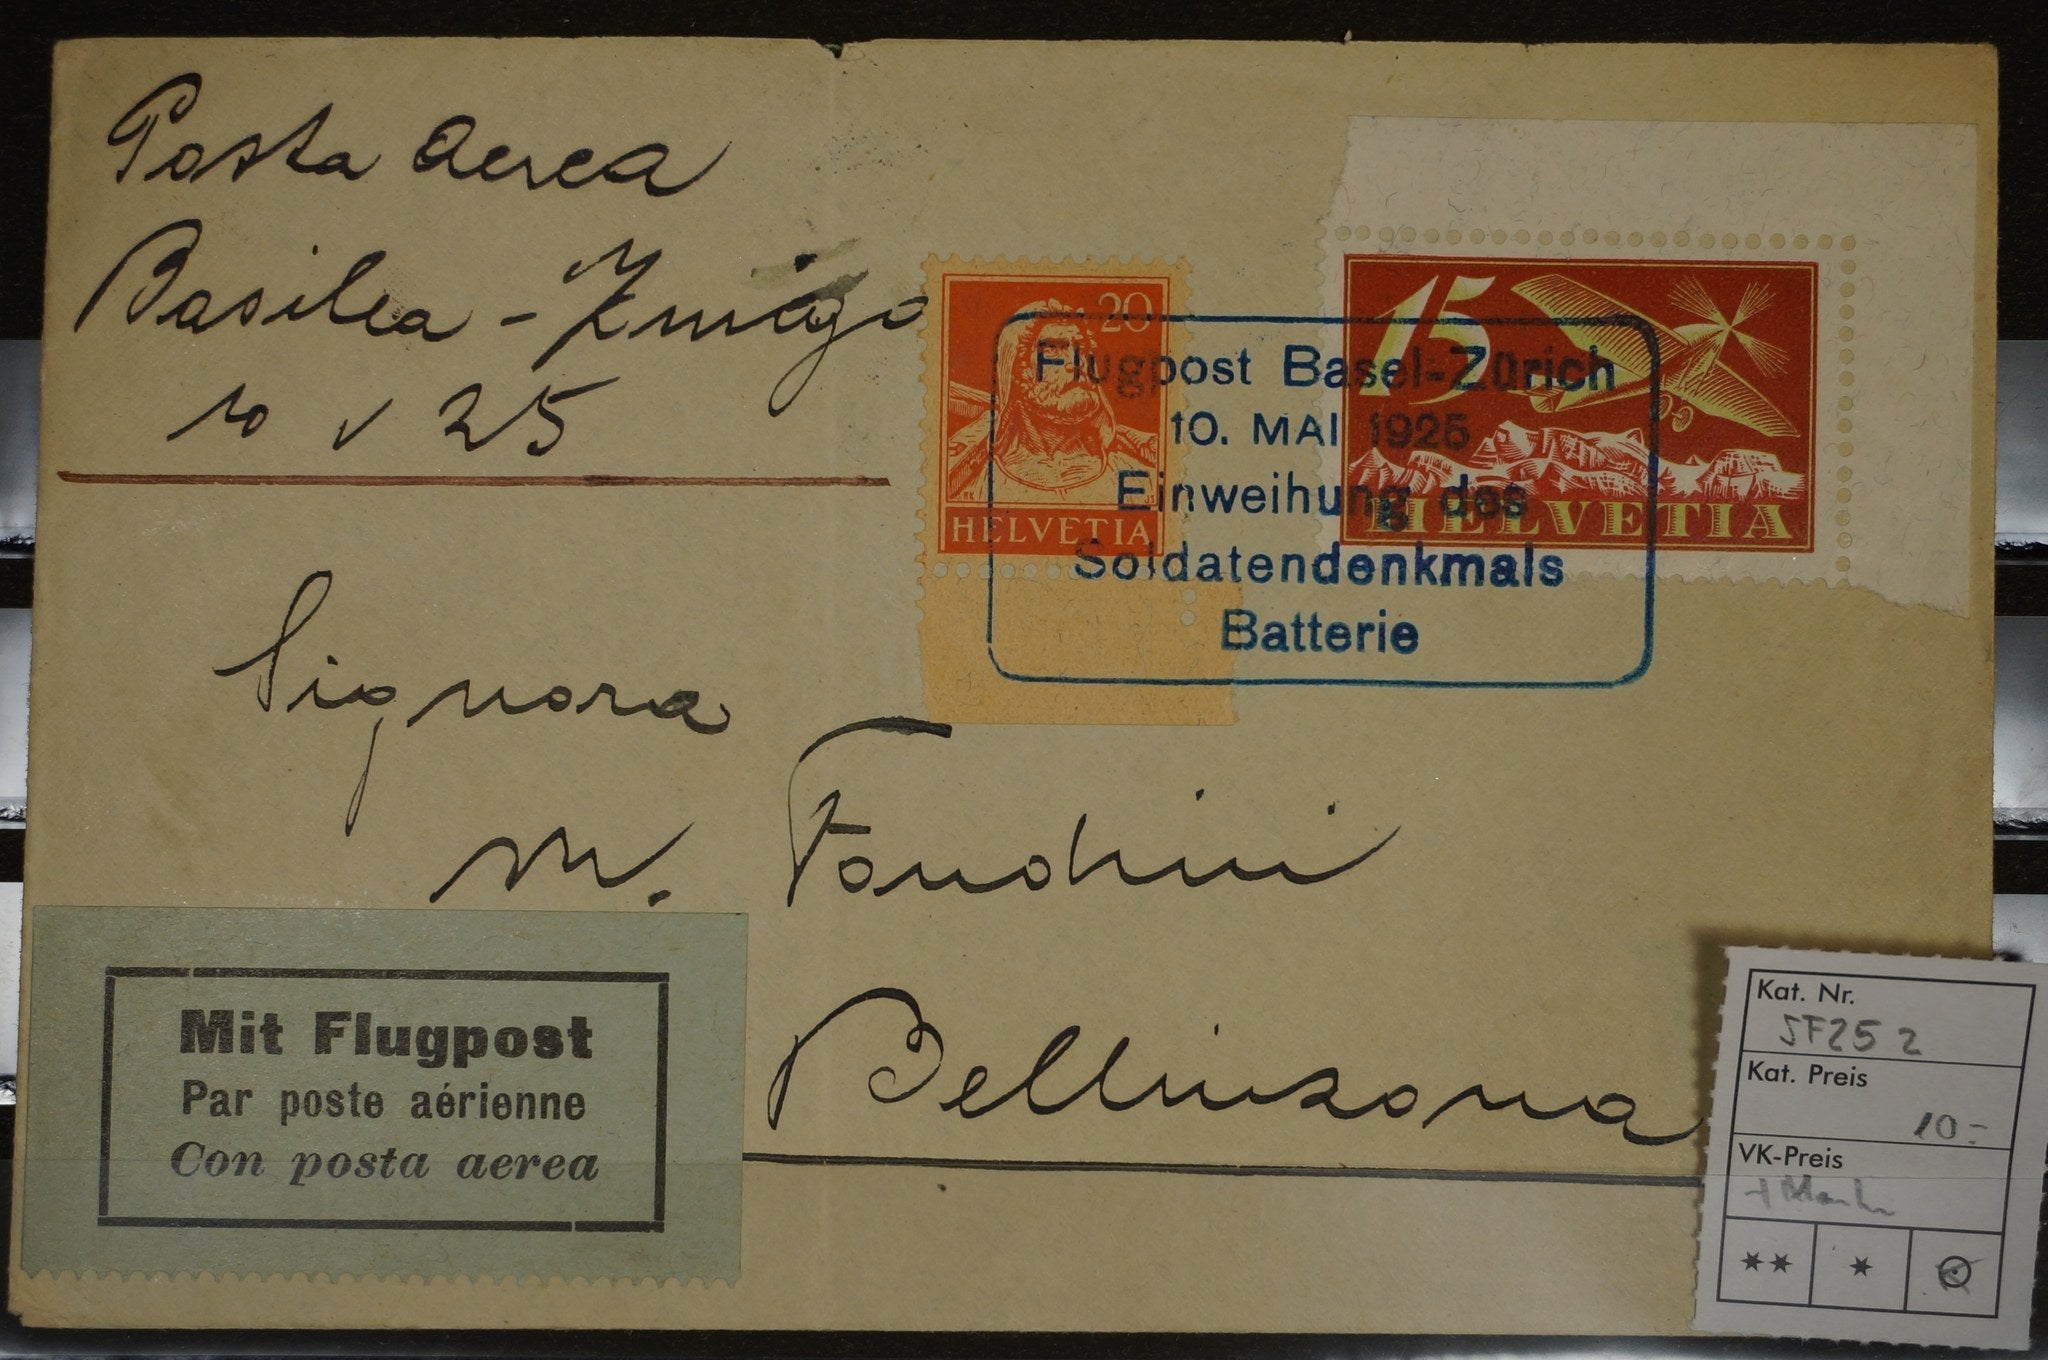 Posta aerea
Basilea - Zurigo
10 V 25
20
HELVETIA
15
HELVETIA
Flugpost Basel-Zürich
10. MAI 1925
Einweihung des
Soldatendenkmals
Batterie
Signora
M. Fondrini
Bellinzona
Mit Flugpost
Par poste aérienne
Con posta aerea
Kat. Nr.
SF25 2
Kat. Preis
10.-
VK-Preis
** * ⊙